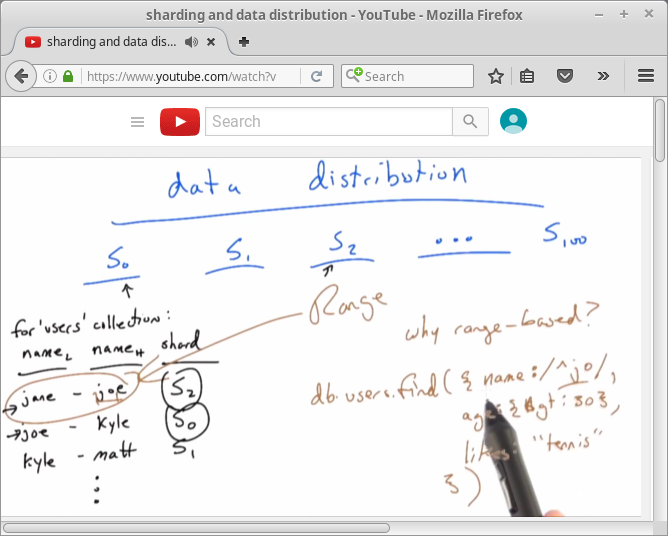 sharding and data distribution - YouTube - Mozilla Firefox
sharding and data dis...
https://www.youtube.com/watch?v
Search
Search
data distribution
S0 S1 S2 ... S100
Range
for 'users' collection:
nameL nameH shard
jane - joe S2
joe - Kyle S0
Kyle - matt S1
why range-based?
db.users.find({name:/^jo/,
age:{$gt:30},
likes: "tennis"
})